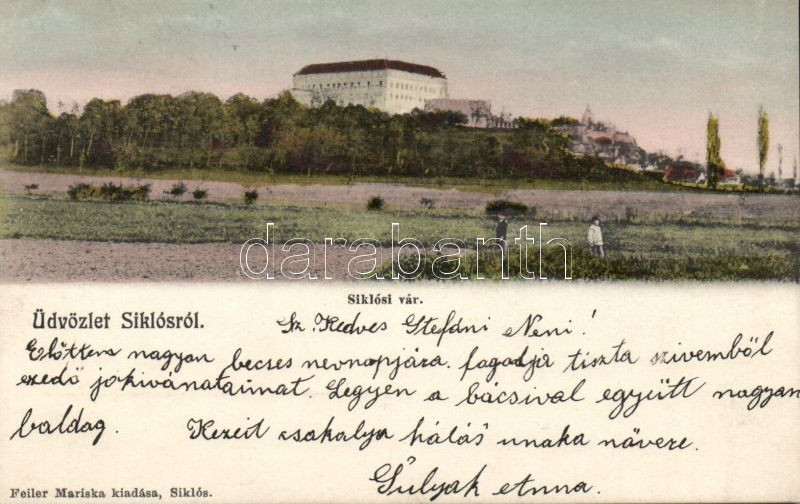 darabanth
Siklósi vár.
Üdvözlet Siklósról.
Sz. Kedves Stefáni Neni!
Előttem nagyan becses nevnapjára. fogadja tiszta szivemből
ezedő jokivánataimat. Legyen a bácsival együtt nagyan
baldag. Kezeit csakalja hálás unaka növere.
Gulyak etnna.
Feiler Mariska kiadása, Siklós.